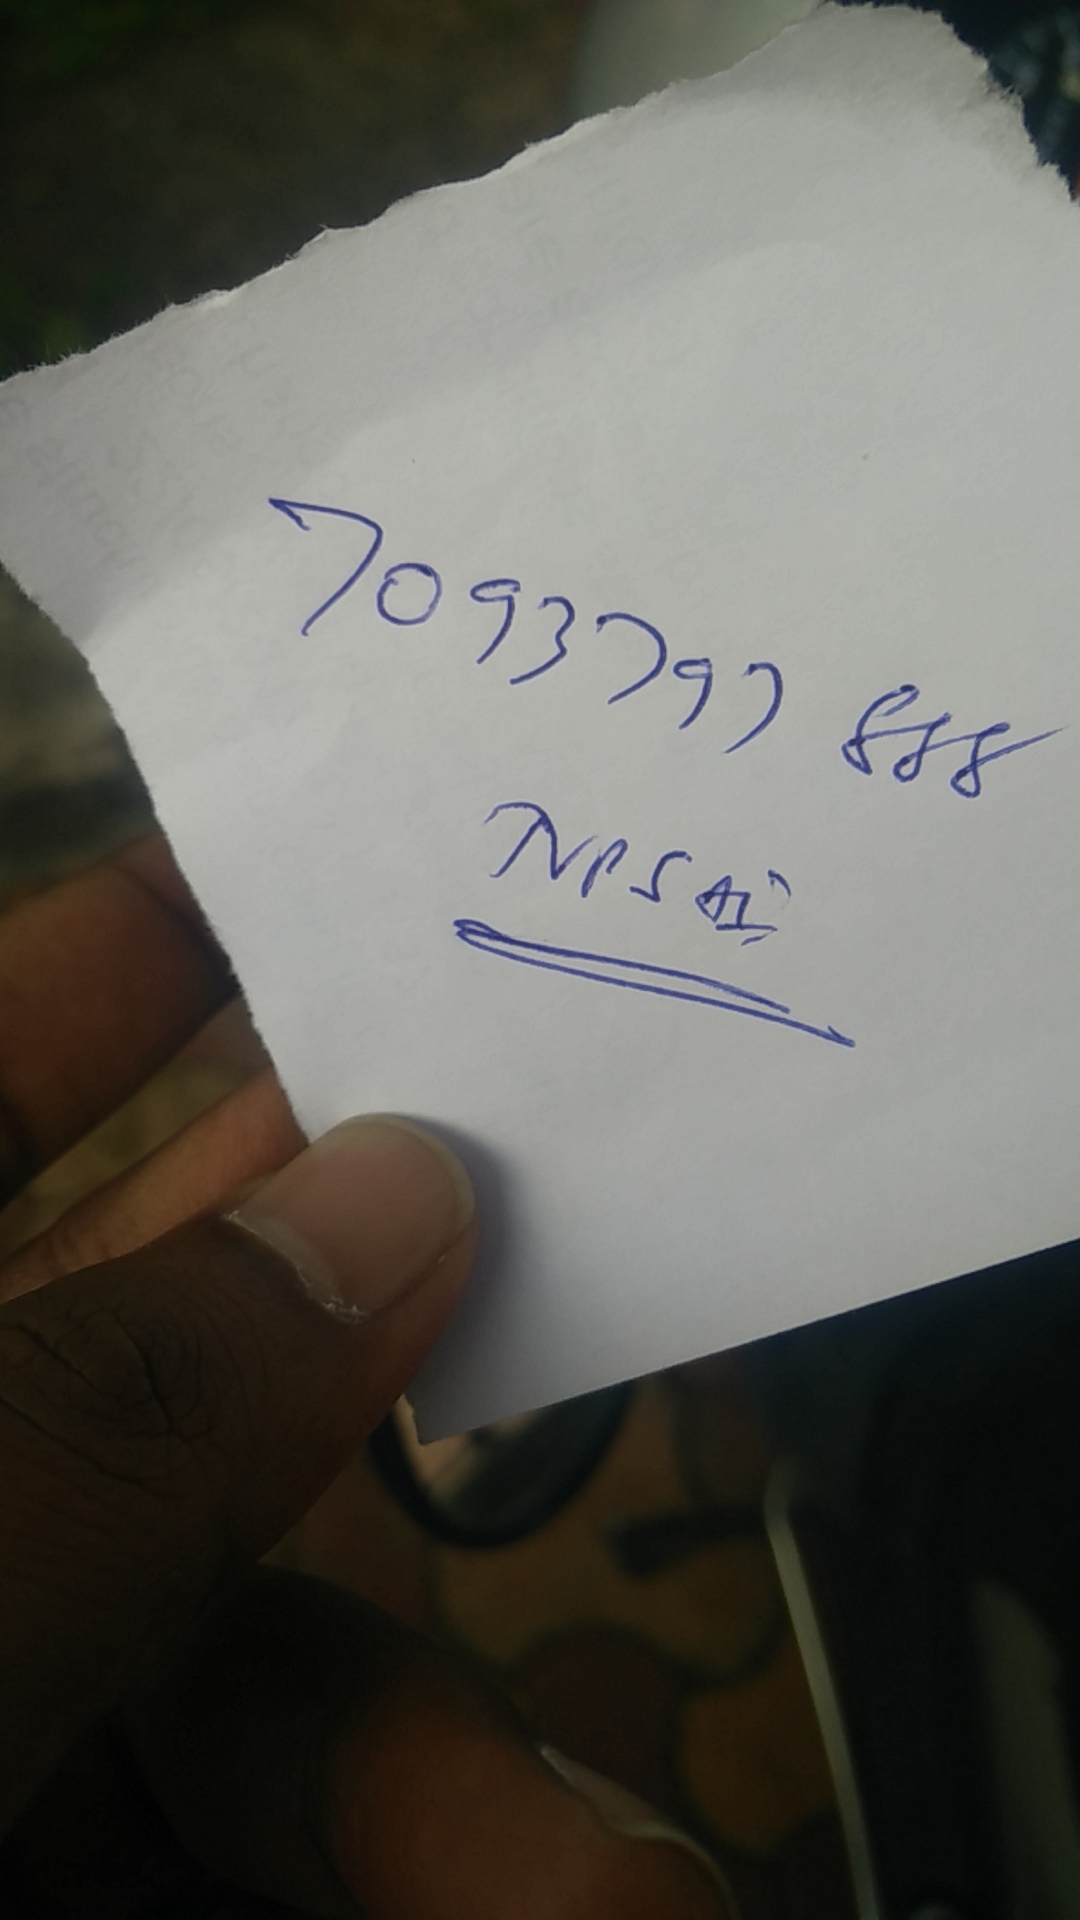 7093797 888
TVPS AI